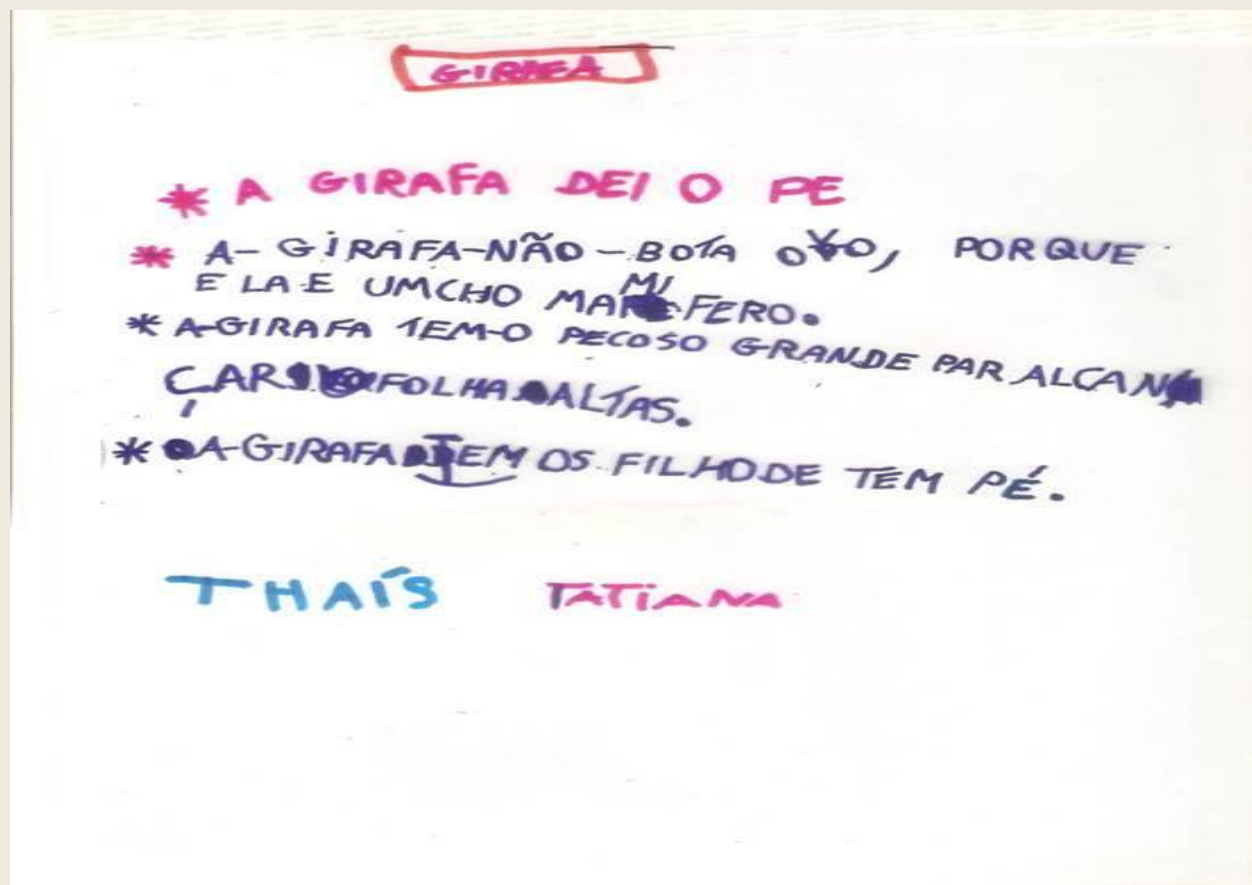 GIRAFA
* A GIRAFA DEI O PE
* A-GIRAFA-NÃO-BOTA OVO, PORQUE
E LA E UMCHO MAMIFERO.
* A-GIRAFA TEM-O PECOSO GRANDE PAR ALCAN
ÇAR FOLHA ALTAS.
* A-GIRAFA TEM OS FILHODE TEM PÉ.
THAÍS TATIANA